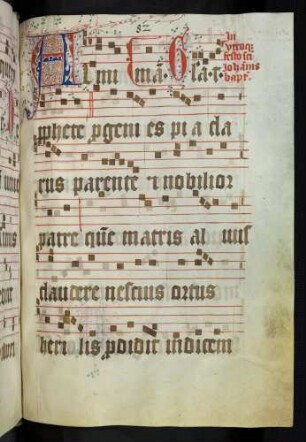 In
utroq;
festo sci
Johānis
bapt.
Almi ma Gla. V.
pphete pgeni es pi a cla
rus parente & nobilior
patre quē matris al vus
claudere nescius ortus
heri lis pdidit indicem